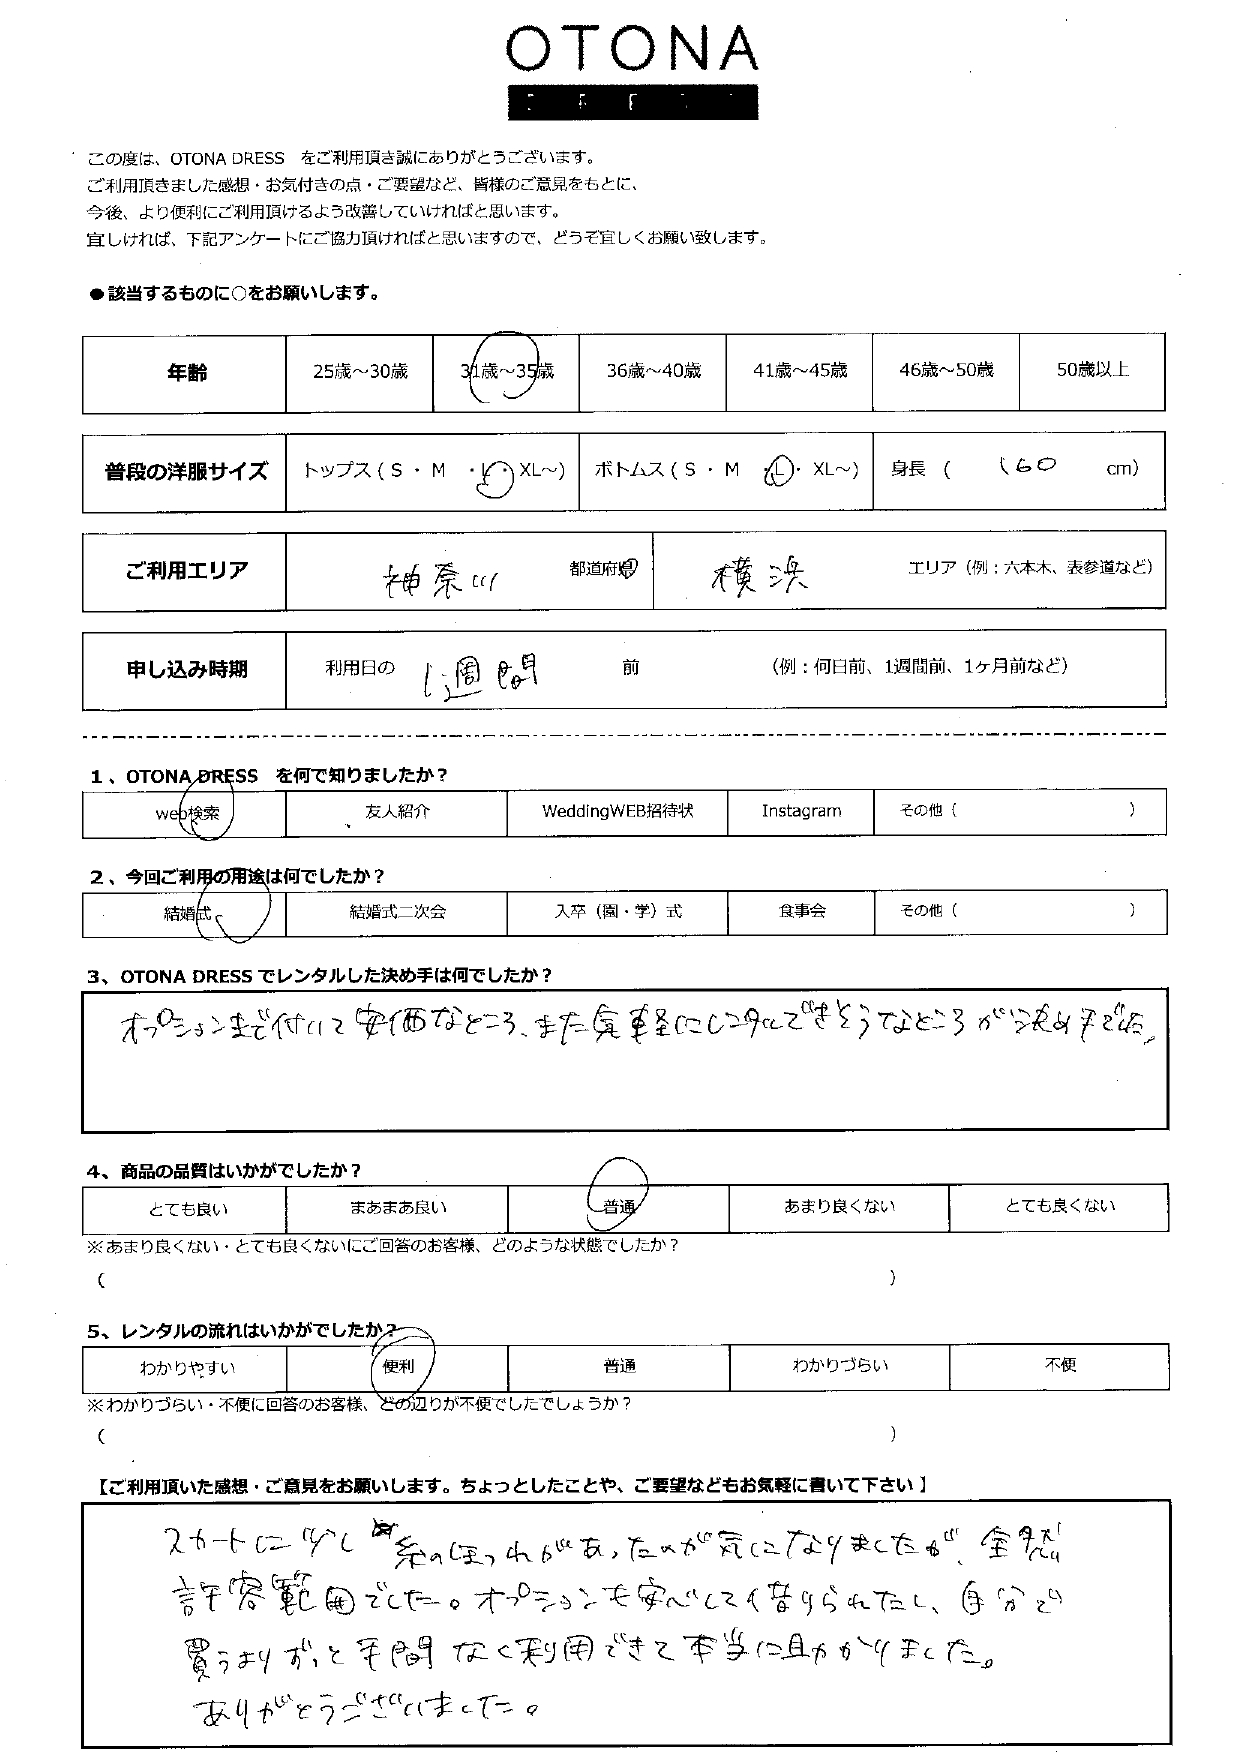 OTONA
この度は、OTONA DRESS をご利用頂き誠にありがとうございます。
ご利用頂きました感想・お気付きの点・ご要望など、皆様のご意見をもとに、
今後、より便利にご利用頂けるよう改善していければと思います。
宜しければ、下記アンケートにご協力頂ければと思いますので、どうぞ宜しくお願い致します。
●該当するものに○をお願いします。
年齢 25歳～30歳 31歳～35歳 36歳～40歳 41歳～45歳 46歳～50歳 50歳以上
普段の洋服サイズ トップス（S・M・L・XL～） ボトムス（S・M・L・XL～） 身長（ 160 cm）
ご利用エリア 神奈川 都道府県 横浜 エリア（例：六本木、表参道など）
申し込み時期 利用日の 1週間 前 （例：何日前、1週間前、1ヶ月前など）
1、OTONA DRESS を何で知りましたか？
web検索 友人紹介 WeddingWEB招待状 Instagram その他（ ）
2、今回ご利用の用途は何でしたか？
結婚式 結婚式二次会 入卒（園・学）式 食事会 その他（ ）
3、OTONA DRESSでレンタルした決め手は何でしたか？
オプションまで付いて安価なところ、また気軽にレンタルできそうなところが決め手でした。
4、商品の品質はいかがでしたか？
とても良い まあまあ良い 普通 あまり良くない とても良くない
※あまり良くない・とても良くないにご回答のお客様、どのような状態でしたか？
（ ）
5、レンタルの流れはいかがでしたか？
わかりやすい 便利 普通 わかりづらい 不便
※わかりづらい・不便に回答のお客様、どの辺りが不便でしたでしょうか？
（ ）
【ご利用頂いた感想・ご意見をお願いします。ちょっとしたことや、ご要望などもお気軽に書いて下さい】
スカートに少し糸のほつれがあったのが気になりましたが、全然
許容範囲でした。オプションも安心して借りられたし、自分で
買うよりずっと手間なく利用できて本当に助かりました。
ありがとうございました。